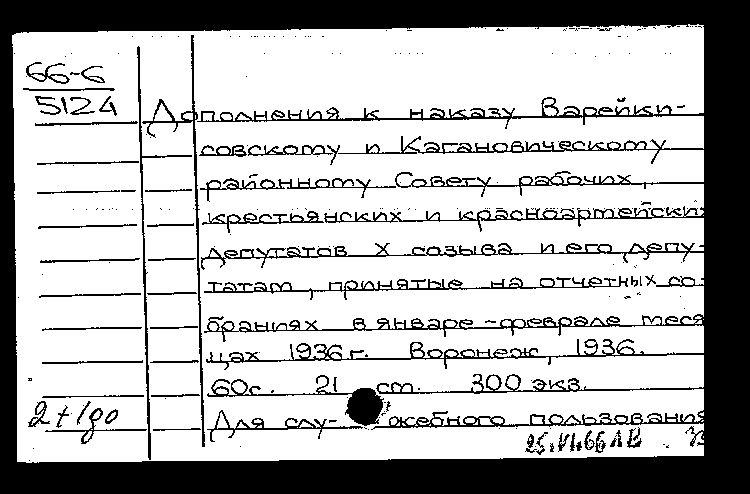 66-6
5124
Дополнения к наказу Варейки-
совскому и Кагановическому
районному Совету рабочих,
крестьянских и красноармейских
депутатов X созыва и его депу-
татам, принятые на отчетных со-
браниях в январе-феврале меся
цах 1936г. Воронеж, 1936.
60с. 21 ст. 300 экз.
2+1до
Для слу- жебного пользования
25.VI.66 АВ